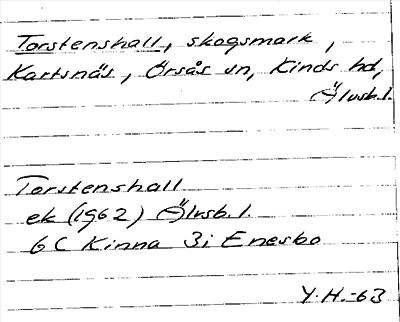 Torstenshall, skogsmark,
Kartsnäs, Örsås sn, Kinds hd,
Älvsb.l.
Torstenshall
ek (1962) Älvsb.l.
6C Kinna 3i Enesbo
Y.H.-63